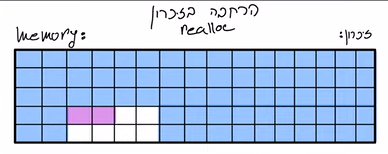 הרחבה בזכרון
realloc
memory:
זכרון: